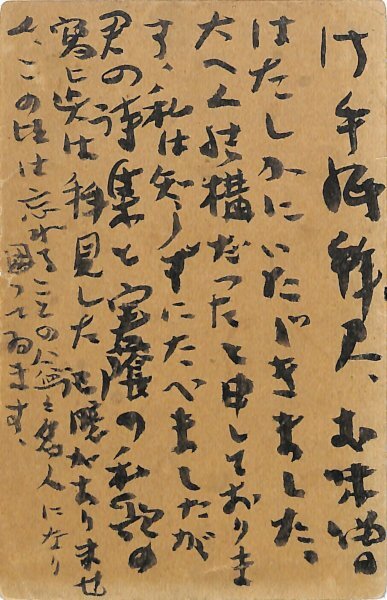 御手紙拝見、お味噌
はたしかにいたゞきました、
大へん結構だつたと申しておりま
す、私は知らずにたべましたが
君の詩集と宝蔭の和歌の
写しは拝見した記憶がありませ
ん、この頃は忘れることの名人になり
困つてゐます、